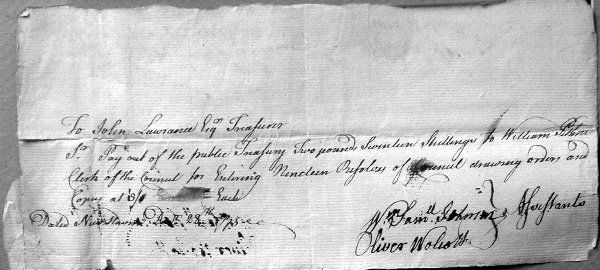 To John Lawrance Esqr. Treasurer
Sr. Pay out of the public Treasury Two pounds Seventeen Shillings to William Pitkin
Clerk of the Council for Entering Nineteen Resolves of Council drawing orders and
Copies at 3/ Each
Dated New Haven
Wm. Saml. Johnson } Assistants
Oliver Wolcott